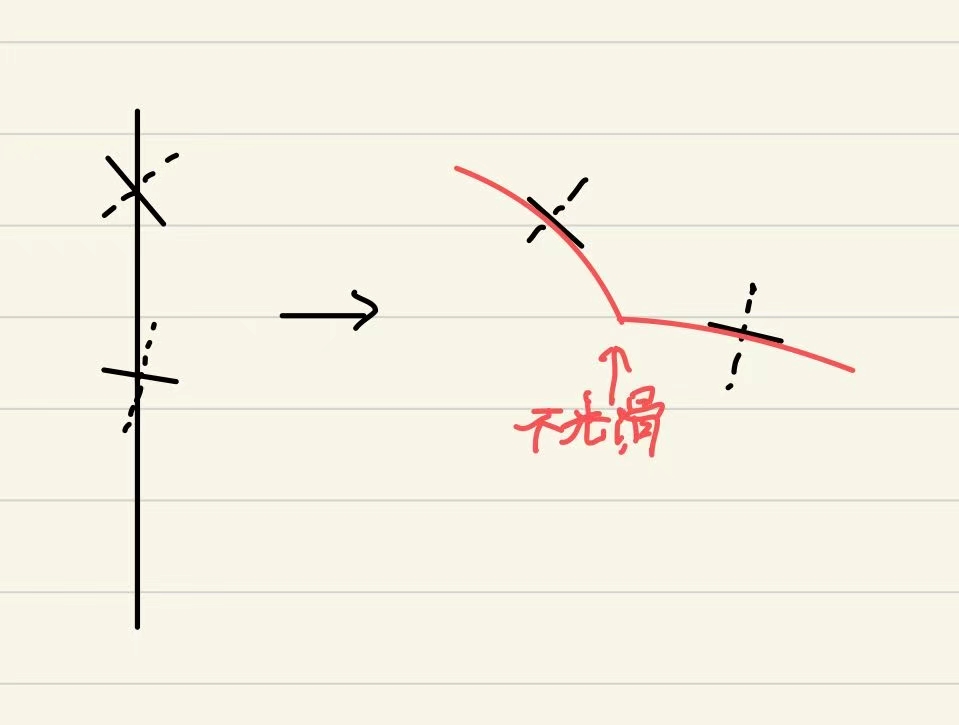 不光滑